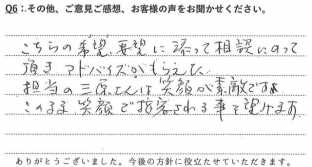 Q6：その他、ご意見ご感想、お客様の声をお聞かせください。
こちらの希望、要望に添って相談にのって
頂きアドバイスがもらえた。
担当の三原さんは笑顔が素敵ですよ
このまま笑顔で接客される事を望みます。
ありがとうございました。今後の方針に役立たせていただきます。